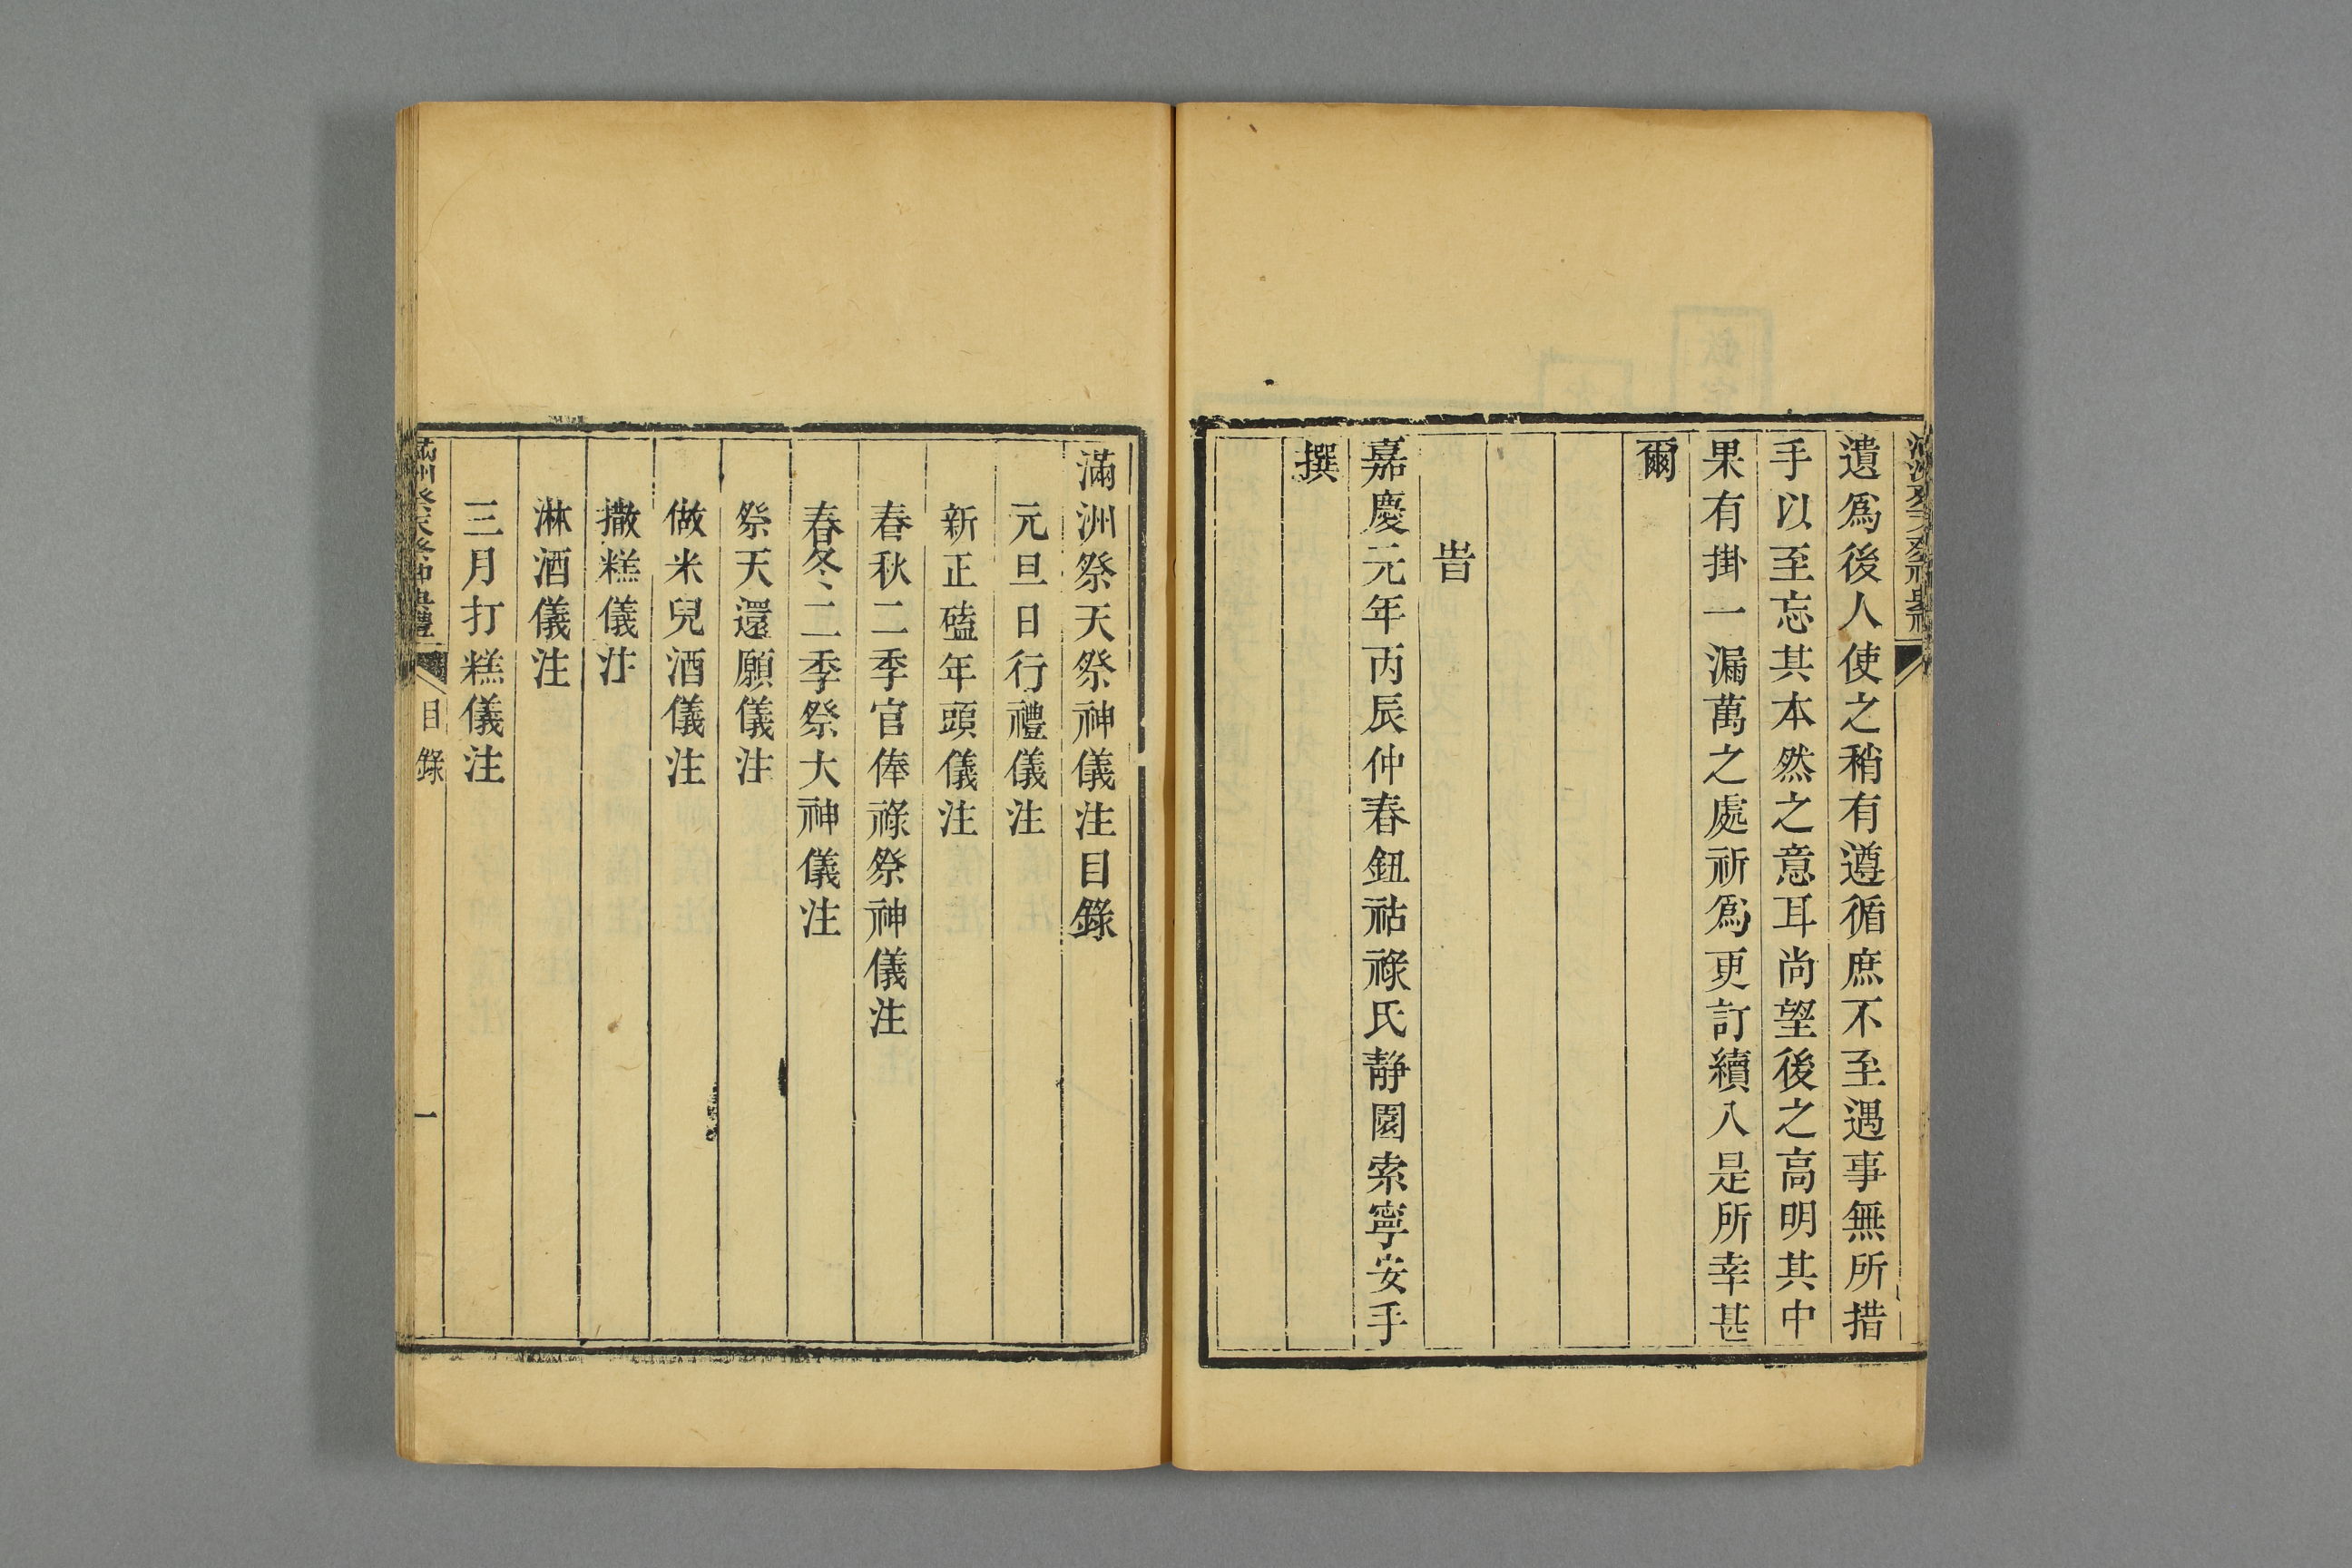 遺爲後人使之稍有遵循庶不至遇事無所措
手以至忘其本然之意耳尚望後之高明其中
果有掛一漏萬之處祈爲更訂續入是所幸甚
爾
旹
嘉慶元年丙辰仲春鈕祜祿氏靜園索寧安手
撰
滿洲祭天祭神儀注目錄
元旦日行禮儀注
新正磕年頭儀注
春秋二季官俸祿祭神儀注
春冬二季祭大神儀注
祭天還願儀注
做米兒酒儀注
撒糕儀注
淋酒儀注
三月打糕儀注
滿洲祭天祭神典禮 目錄 一